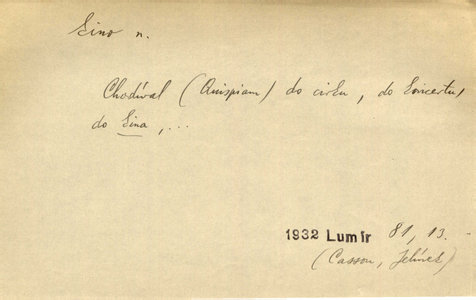 kino n.
Chodíval (Quispiam) do cirku, do koncertu,
do kina, ...
1932 Lumír 81, 13.
(Cassou, Jelínek)